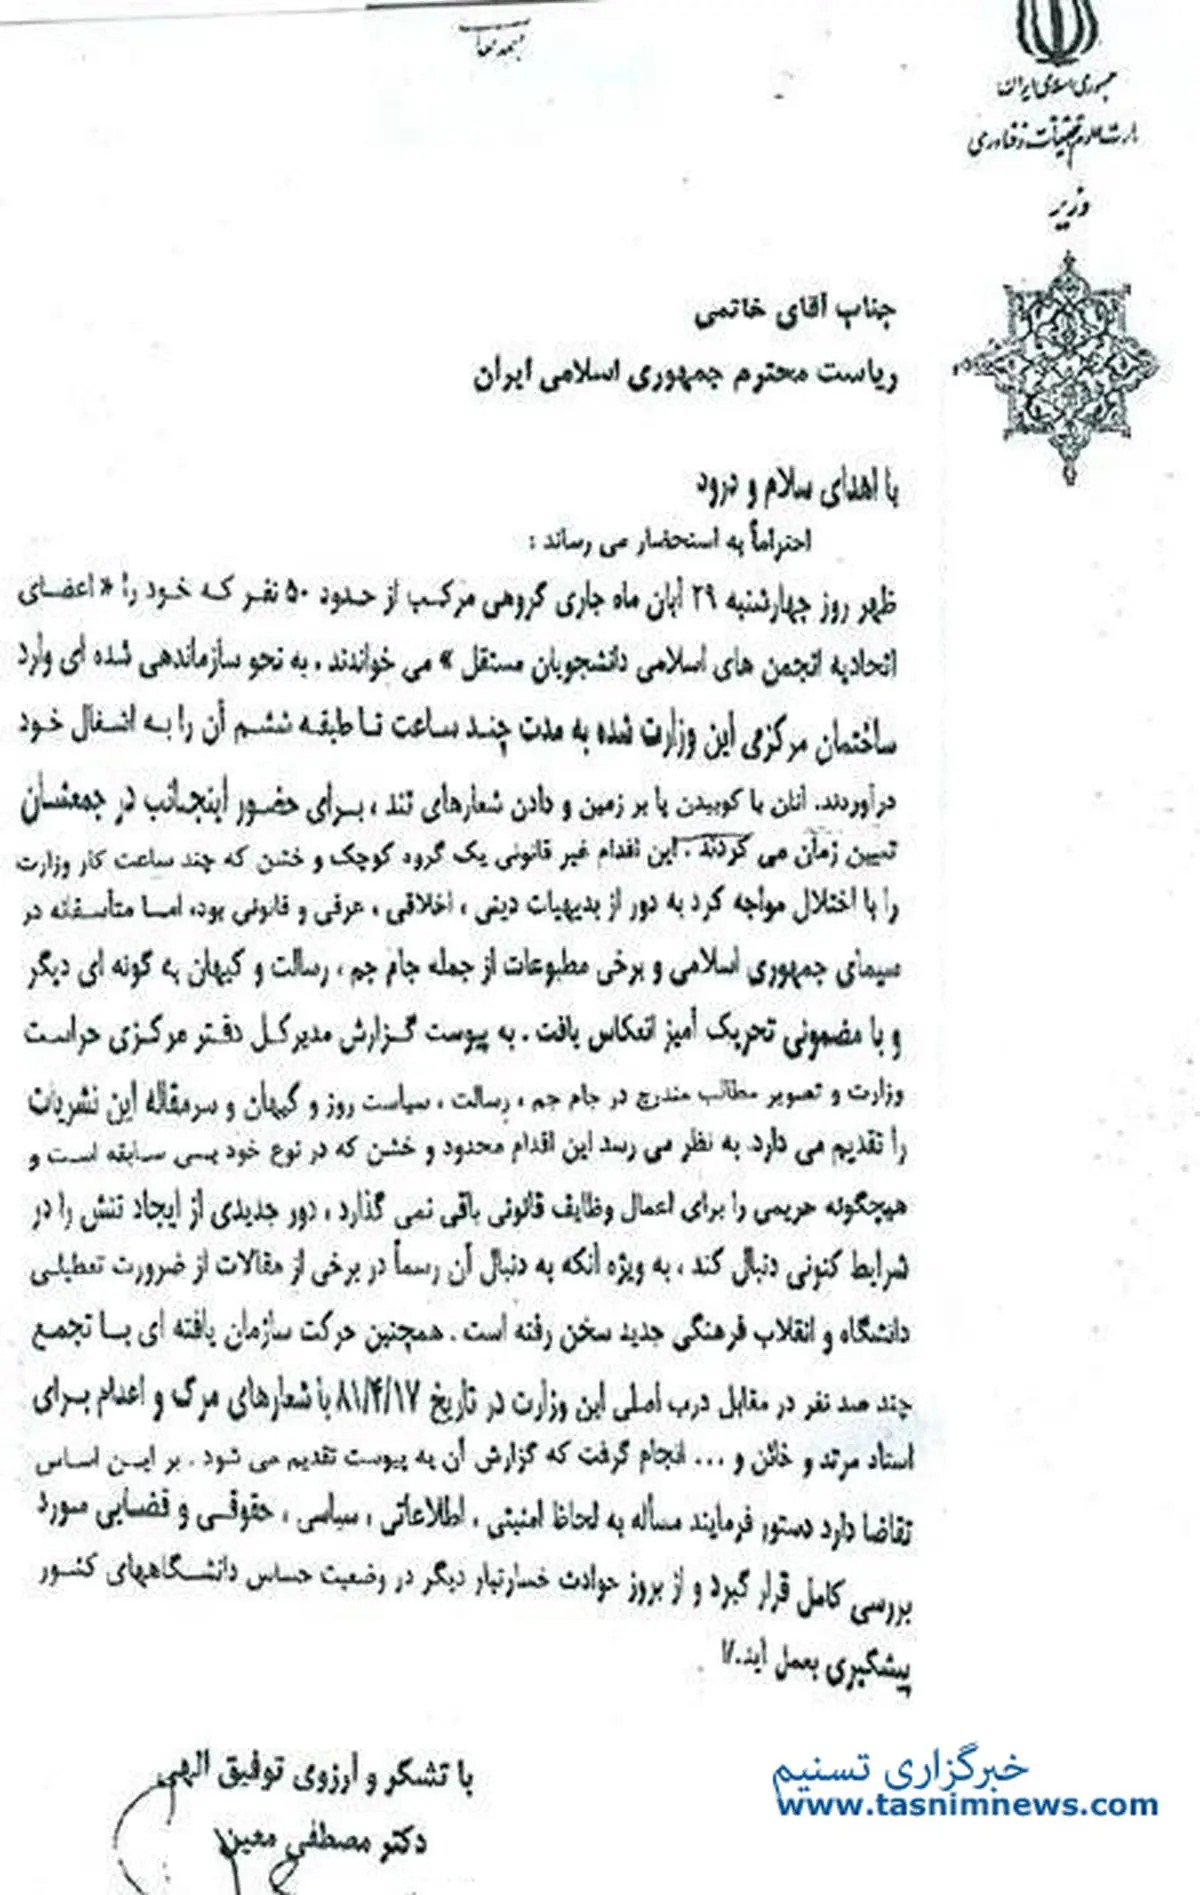 بسمه تعالی
جمهوری اسلامی ایران
وزارت علوم تحقیقات و فناوری
وزیر
جناب آقای خاتمی
ریاست محترم جمهوری اسلامی ایران
با اهدای سلام و درود
احتراماً به استحضار می رساند :
ظهر روز چهارشنبه ۲۹ آبان ماه جاری گروهی مرکب از حدود ۵۰ نفر که خود را « اعضای
اتحادیه انجمن های اسلامی دانشجویان مستقل » می خواندند ، به نحو سازماندهی شده ای وارد
ساختمان مرکزی این وزارت شده به مدت چند ساعت تا طبقه ششم آن را به اشغال خود
درآوردند. آنان با کوبیدن پا بر زمین و دادن شعارهای تند ، برای حضور اینجانب در جمعشان
تعیین زمان می کردند . این اقدام غیر قانونی یک گروه کوچک و خشن که چند ساعت کار وزارت
را با اختلال مواجه کرد به دور از بدیهیات دینی ، اخلاقی ، عرفی و قانونی بود، اما متأسفانه در
سیمای جمهوری اسلامی و برخی مطبوعات از جمله جام جم ، رسالت و کیهان به گونه ای دیگر
و با مضمونی تحریک آمیز انعکاس یافت . به پیوست گزارش مدیرکل دفتر مرکزی حراست
وزارت و تصویر مطالب مندرج در جام جم ، رسالت ، سیاست روز و کیهان و سرمقاله این نشریات
را تقدیم می دارد. به نظر می رسد این اقدام محدود و خشن که در نوع خود بی سابقه است و
هیچگونه حریمی را برای اعمال وظایف قانونی باقی نمی گذارد ، دور جدیدی از ایجاد تنش را در
شرایط کنونی دنبال کند ، به ویژه آنکه به دنبال آن رسماً در برخی از مقالات از ضرورت تعطیلی
دانشگاه و انقلاب فرهنگی جدید سخن رفته است . همچنین حرکت سازمان یافته ای با تجمع
چند صد نفر در مقابل درب اصلی این وزارت در تاریخ ۸۱/۴/۱۷ با شعارهای مرگ و اعدام برای
استاد مرتد و خائن و ... انجام گرفت که گزارش آن به پیوست تقدیم می شود . بر این اساس
تقاضا دارد دستور فرمایند مسأله به لحاظ امنیتی ، اطلاعاتی ، سیاسی ، حقوقی و قضایی مورد
بررسی کامل قرار گیرد و از بروز حوادث خسارتبار دیگر در وضعیت حساس دانشگاههای کشور
پیشگیری بعمل آید./۱
با تشکر و آرزوی توفیق الهی
دکتر مصطفی معین
خبرگزاری تسنیم
www.tasnimnews.com